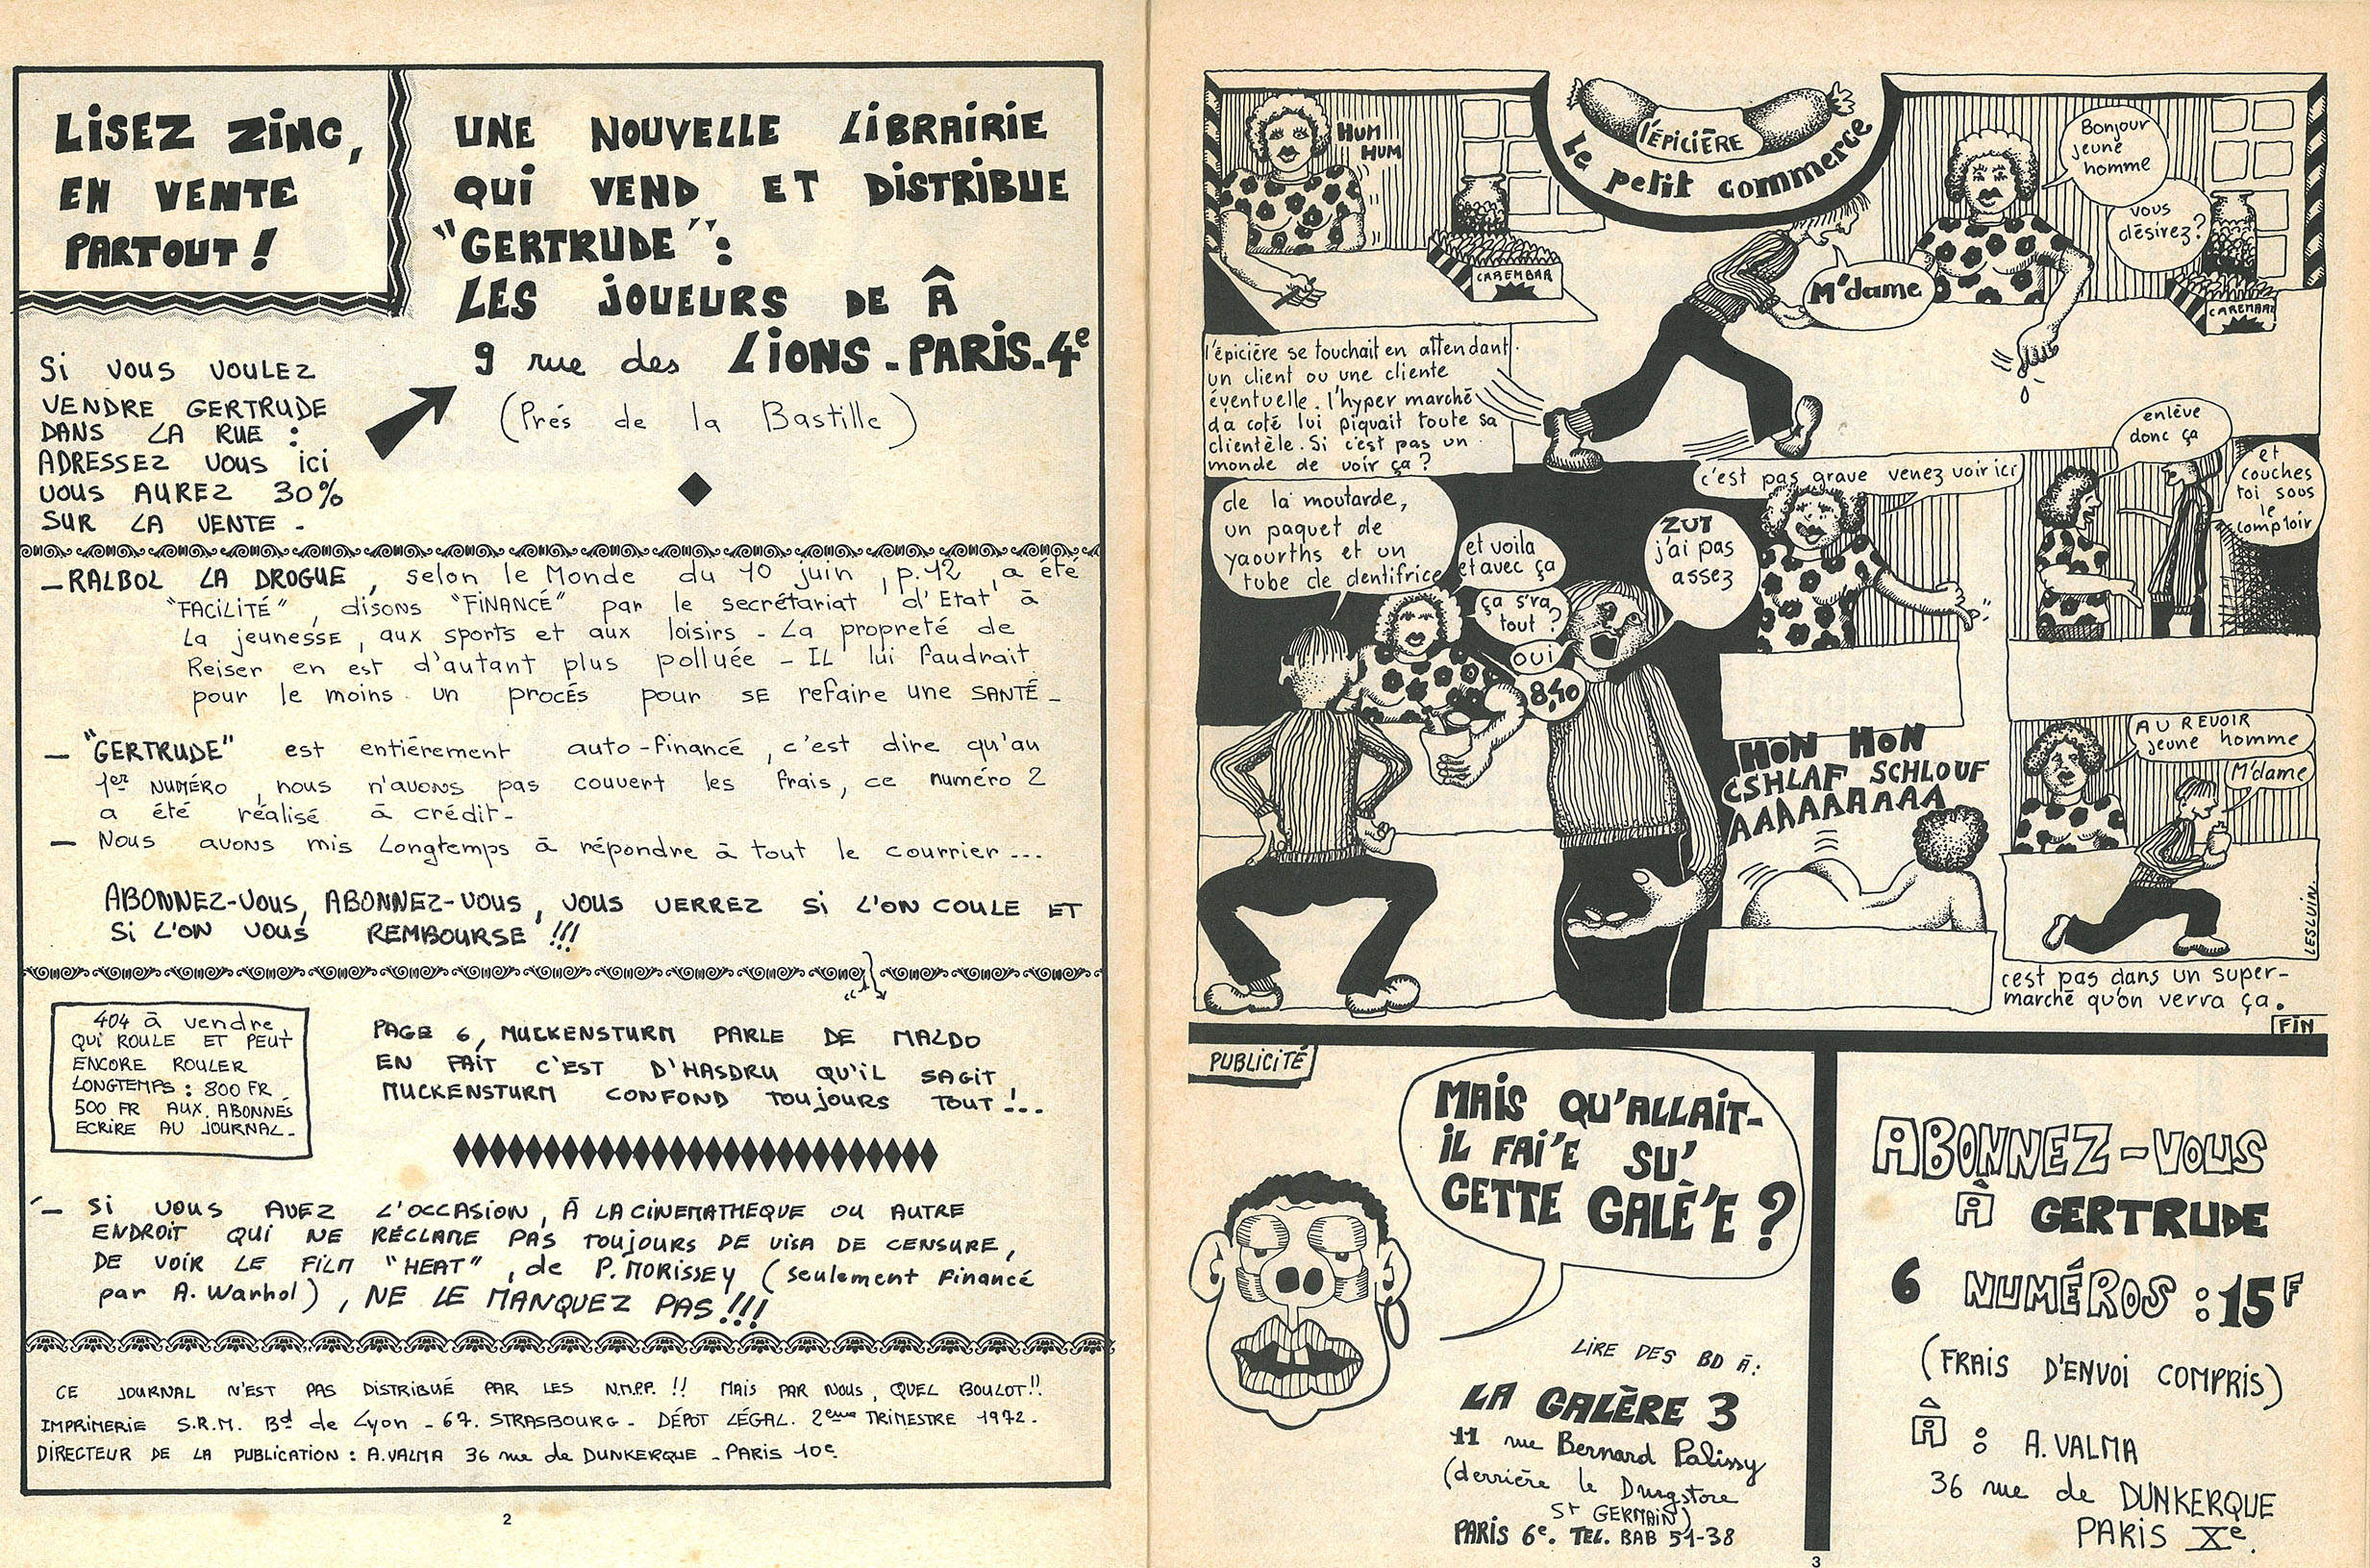 LISEZ ZINC,
EN VENTE
PARTOUT !
UNE NOUVELLE LIBRAIRIE
QUI VEND ET DISTRIBUE
"GERTRUDE" :
LES JOUEURS DE Â
9 rue des LIONS - PARIS - 4e
(Prés de la Bastille)
Si VOUS VOULEZ
VENDRE GERTRUDE
DANS LA RUE :
ADRESSEZ VOUS ici
VOUS AUREZ 30%
SUR LA VENTE -
- RALBOL LA DROGUE, selon le Monde du 10 juin, p.12, a été
"FACILITÉ", disons "FINANCÉ" par le secrétariat d'Etat à
La jeunesse, aux sports et aux loisirs - La propreté de
Reiser en est d'autant plus polluée - IL lui faudrait
pour le moins un procés pour SE refaire une SANTÉ -
- "GERTRUDE" est entiérement auto-financé, c'est dire qu'au
1er NUMÉRO, nous n'avons pas couvert les frais, ce numéro 2
a été réalisé à crédit -
- Nous avons mis longtemps à répondre à tout le courrier ...
ABONNEZ-VOUS, ABONNEZ-VOUS, VOUS VERREZ Si L'ON COULE ET
Si L'ON VOUS REMBOURSE !!!
404 à vendre,
QUI ROULE ET PEUT
ENCORE ROULER
LONGTEMPS : 800 FR.
500 FR AUX ABONNÉS
ECRIRE AU JOURNAL -
PAGE 6, MUCKENSTURM PARLE DE MALDO
EN FAIT C'EST D'HASDRU QU'IL SAGIT
MUCKENSTURM CONFOND TOUJOURS TOUT !...
- Si VOUS AVEZ L'OCCASION, À LA CINEMATHEQUE OU AUTRE
ENDROIT QUI NE RÉCLAME PAS TOUJOURS DE VISA DE CENSURE,
DE VOIR LE FILM "HEAT", de P. MORISSEY (seulement financé
par A. Warhol), NE LE MANQUEZ PAS !!!
CE JOURNAL N'EST PAS DISTRIBUÉ PAR LES N.M.P.P. !! MAIS PAR NOUS, QUEL BOULOT !!
IMPRIMERIE S.R.M. Bd de Lyon - 67. STRASBOURG - DÉPOT LÉGAL. 2eme TRIMESTRE 1972.
DIRECTEUR DE LA PUBLICATION : A. VALMA 36 rue de DUNKERQUE - PARIS 10e
2
l'ÉPICIÈRE
le petit commerce
HUM
HUM
CAREMBAR
Bonjour
jeune
homme
vous
désirez?
M'dame
CAREMBAR
l'épicière se touchait en attendant
un client ou une cliente
éventuelle. l'hyper marché
d'a coté lui piquait toute sa
clientèle. Si c'est pas un
monde de voir ça ?
de la moutarde,
un paquet de
yaourths et un
tube de dentifrice
et voila
et avec ça
ça s'ra
tout ?
oui
8,40
ZUT
j'ai pas
assez
c'est pas grave venez voir ici
enlève
donc ça
et
couches
toi sous
le
comptoir
HON HON
CSHLAF SCHLOUF
AAAAAAAAA
AU REVOIR
jeune homme
M'dame
LESLUIN.
c'est pas dans un super-
marché qu'on verra ça.
FIN
PUBLICITÉ
MAIS QU'ALLAIT-
IL FAI'E SU'
CETTE GALÈ'E ?
LIRE DES BD À :
LA GALÈRE 3
11 rue Bernard Palissy
(derrière le Drugstore
St GERMAIN)
PARIS 6e. TEL. BAB 51-38
ABONNEZ-VOUS
À GERTRUDE
6 NUMÉROS : 15F
(FRAIS D'ENVOI COMPRIS)
À : A. VALMA
36 rue de DUNKERQUE
PARIS Xe.
3